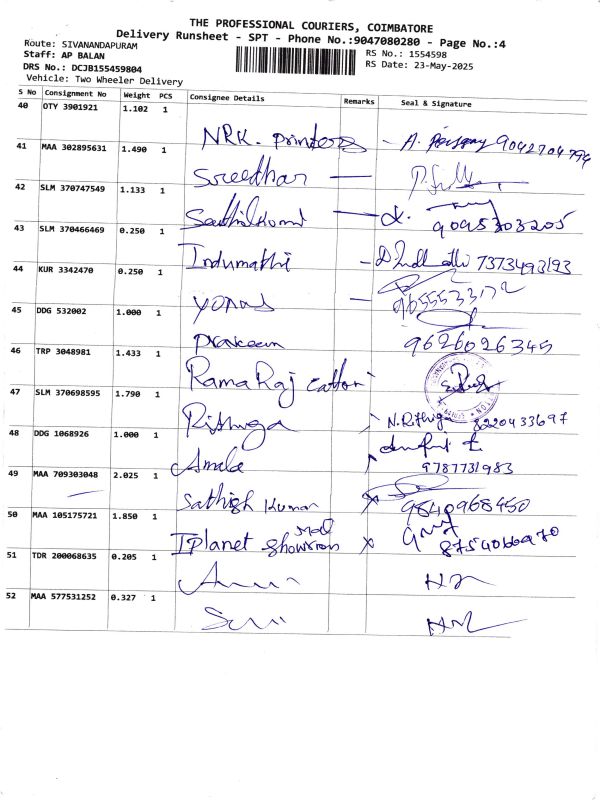 THE PROFESSIONAL COURIERS, COIMBATORE
Delivery Runsheet - SPT - Phone No.:9047080280 - Page No.:4
Route: SIVANANDAPURAM
RS No.: 1554598
Staff: AP BALAN
RS Date: 23-May-2025
DRS No.: DCJB155459804
Vehicle: Two Wheeler Delivery
S No Consignment No Weight PCS Consignee Details Remarks Seal & Signature
40 OTY 3901921 1.102 1
NRK. printers - A. 9042704794
41 MAA 302895631 1.490 1
Sreedhar —
42 SLM 370747549 1.133 1
Senthilkumar — 9095303205
43 SLM 370466469 0.250 1
Indumathi - 7373493193
44 KUR 3342470 0.250 1
— 9655533172
45 DDG 532002 1.000 1
Praveen 9626026345
46 TRP 3048981 1.433 1
Rama Raj cotton
47 SLM 370698595 1.790 1
Rithiga N.Rithiga 8220433697
48 DDG 1068926 1.000 1
Amala 9787731983
49 MAA 709303048 2.025 1
Sathish Kumar x 9840968450
50 MAA 105175721 1.850 1
Iplanet showroom x 8754066970
51 TDR 200068635 0.205 1
52 MAA 577531252 0.327 1